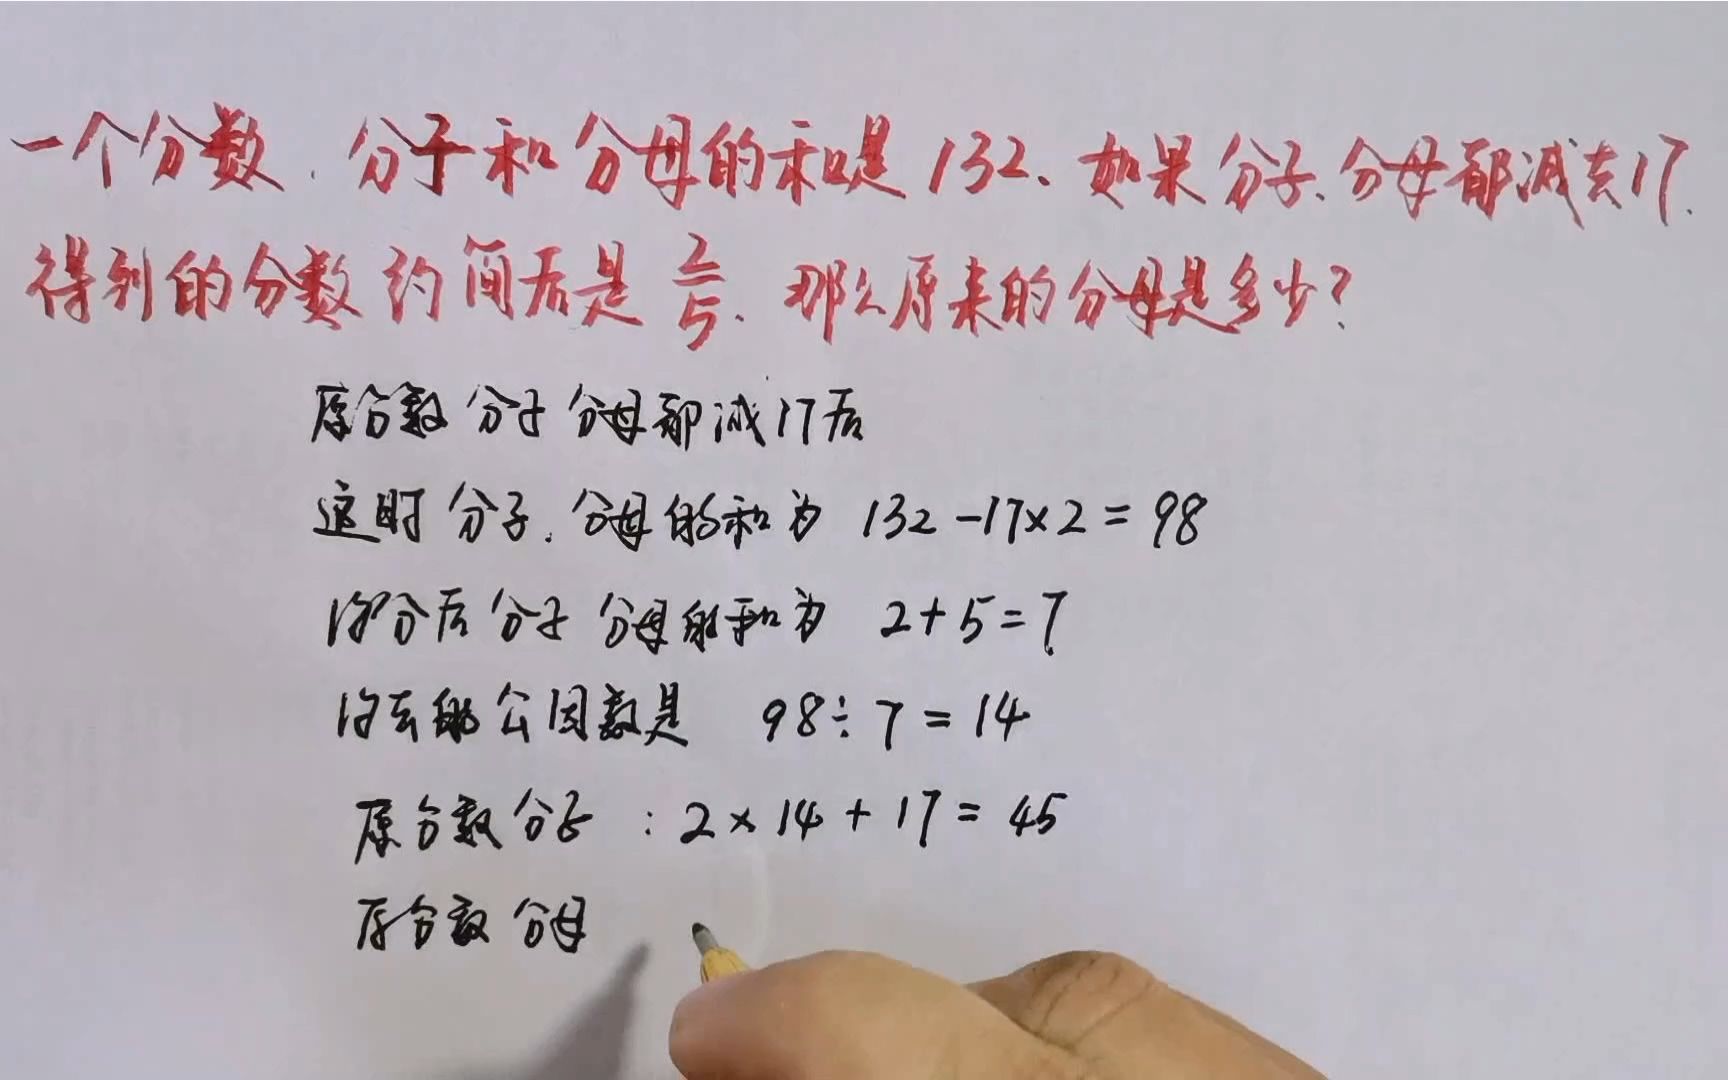 一个分数.分子和分母的和是132.如果分子.分母都减去17.
得到的分数约简后是2/5.那么原来的分母是多少?
原分数分子分母都减17后
这时分子.分母的和为 132-17×2=98
约分后分子分母的和为 2+5=7
约去的公因数是 98÷7=14
原分数分子:2×14+17=45
原分数分母